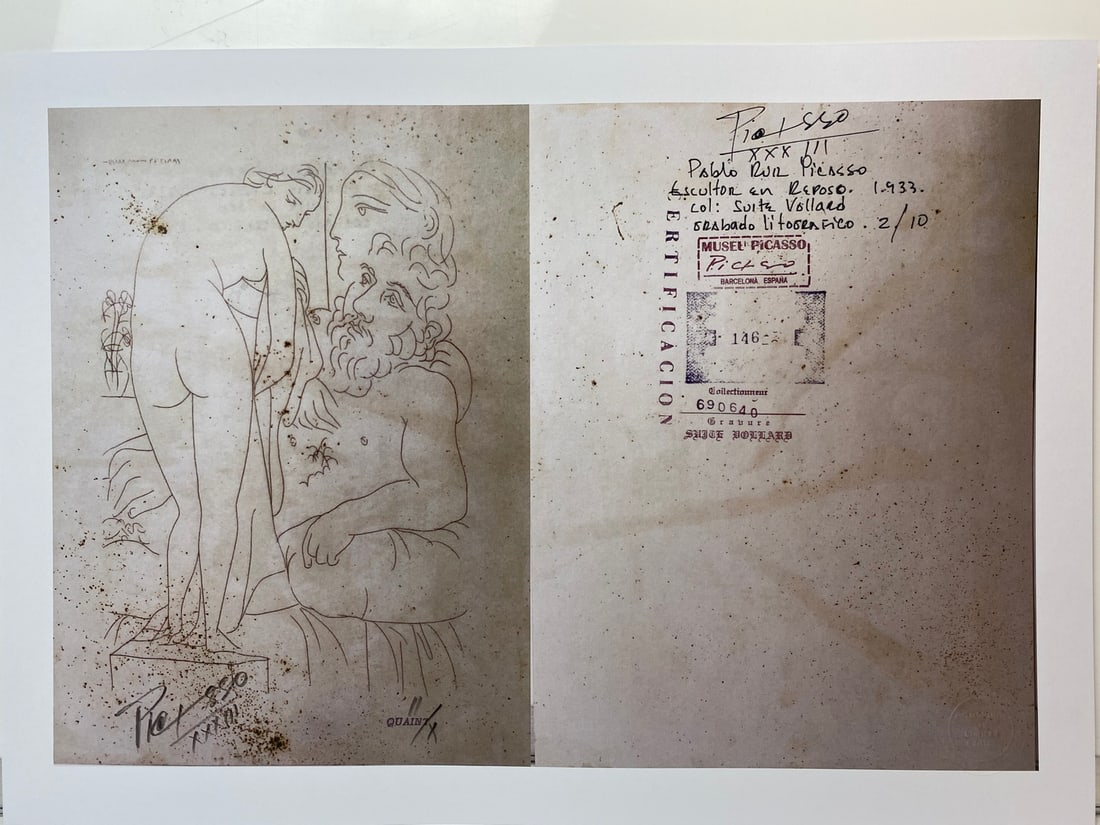 Picasso
XXXIII
QUAINT
II/X
Picasso
XXXIII
Pablo Ruiz Picasso
Escultor en Reposo. 1.933.
col: Suite Vollard
Grabado litografico. 2/10
CERTIFICACION
MUSEU PICASSO
Picasso
BARCELONA, ESPAÑA
146
Collectionneur
690640
Gravure
SUITE VOLLARD